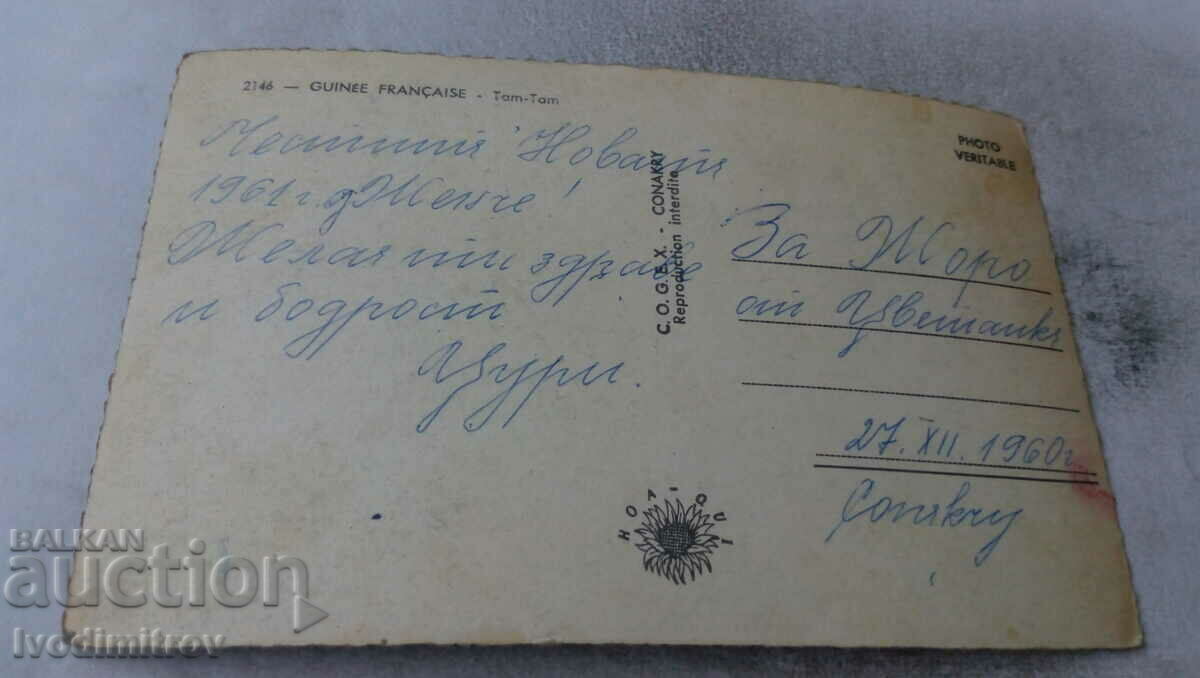 2146 — GUINÉE FRANÇAISE - Tam-Tam
PHOTO
VERITABLE
Новата
1961 г.
Желая ти здраве
и бодрост
Цури.
C.O.G.E.X. - CONAKRY
Reproduction interdite
За Жоро
от Цветанка
27.XII.1960 г.
Conakry
HOA-QUI
BALKAN
auction
Ivodimitrov